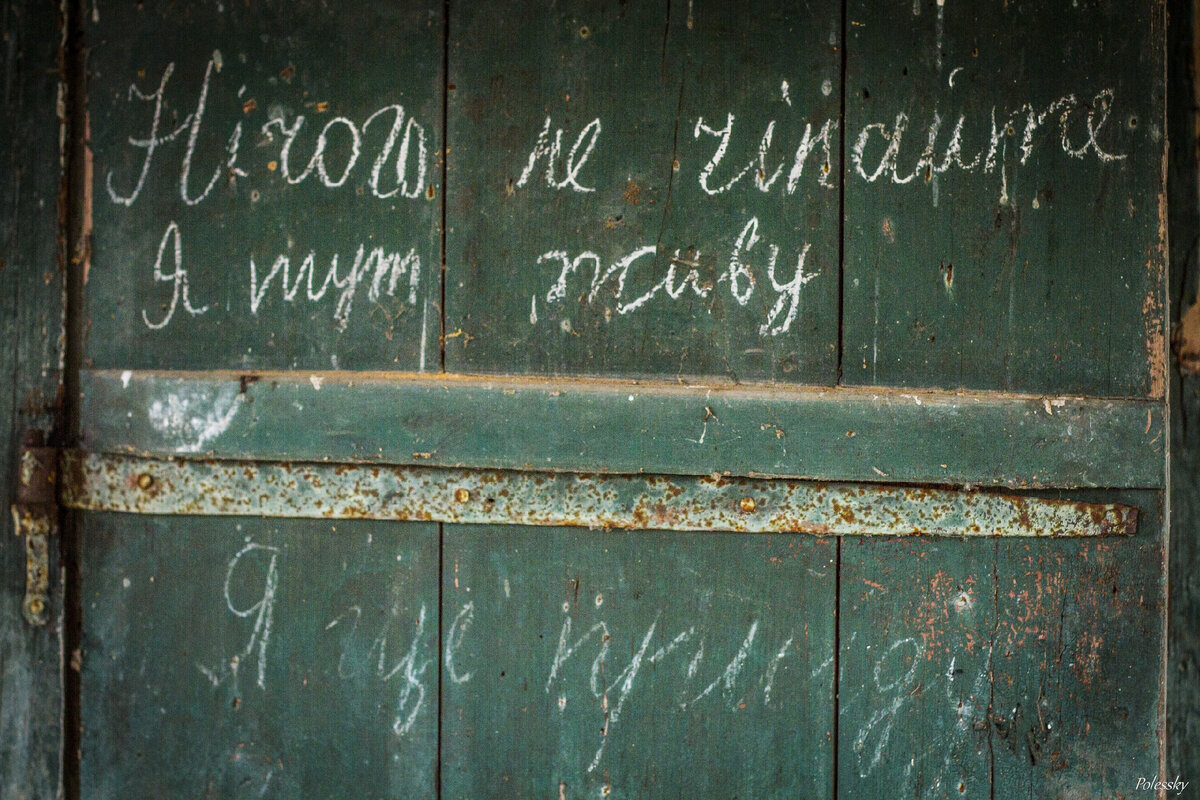 Нічого не чіпайте
Я тут живу
Я ще прийду
Polessky